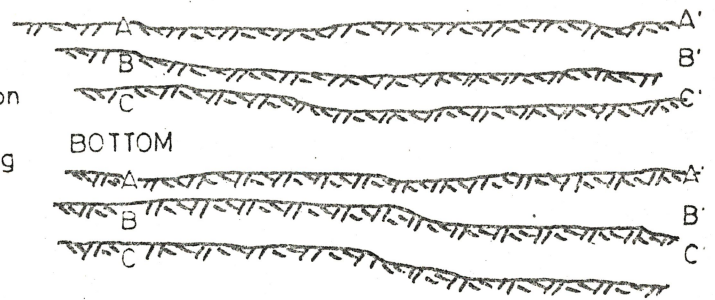 A A'
B B'
on C C'
g BOTTOM
A A'
B B'
C C'